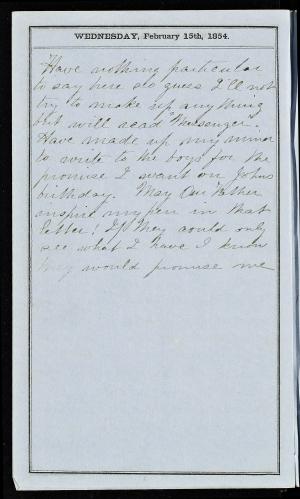 WEDNESDAY, February 15th, 1854.
Have nothing particular
to say here so guess I'll not
try to make up anything
but will read "Messenger".
Have made up my mind
to write to the boys for the
promise I want on Johns
birthday. May Our Father
inspire my pen in that
letter! If they could only
see what I have I know
they would promise me